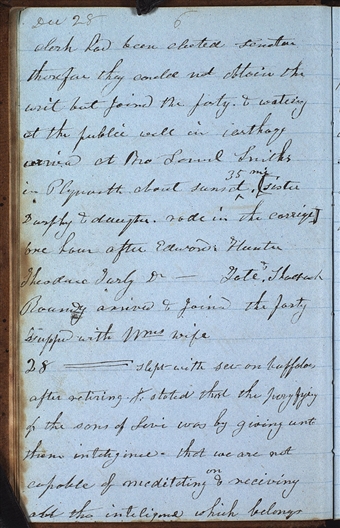 Dec 28 6
clerk had been elected senator
therefore they could not obtain the
writ but joined the party. & watering
at the public well in carthage
arrived at Bro Samuel Smiths
in Plymouth about sunset, 35 mi (Sister
Durphy & daughter. rode in the carrige)
one hour after Edward Hunter
Theodore Turly Dr — Tate. & Shadrach
Roundy arrived & joined the party
Supped with Wms wife
28 — slept with sec on buffaloes
after retiring J. stated that the purifying
of the sons of Levi was by giving unto
them inteligence. that we are not
capable of meditating on & receiving
all the inteligence which belongs